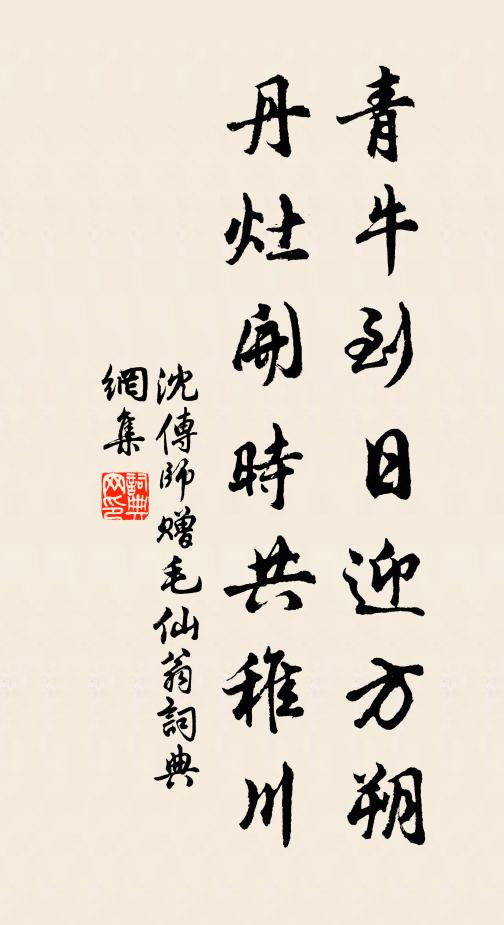 青牛到日迎方朔
丹灶開時共稚川
沈傳師贈毛仙翁詞典
網集
詞典
网印